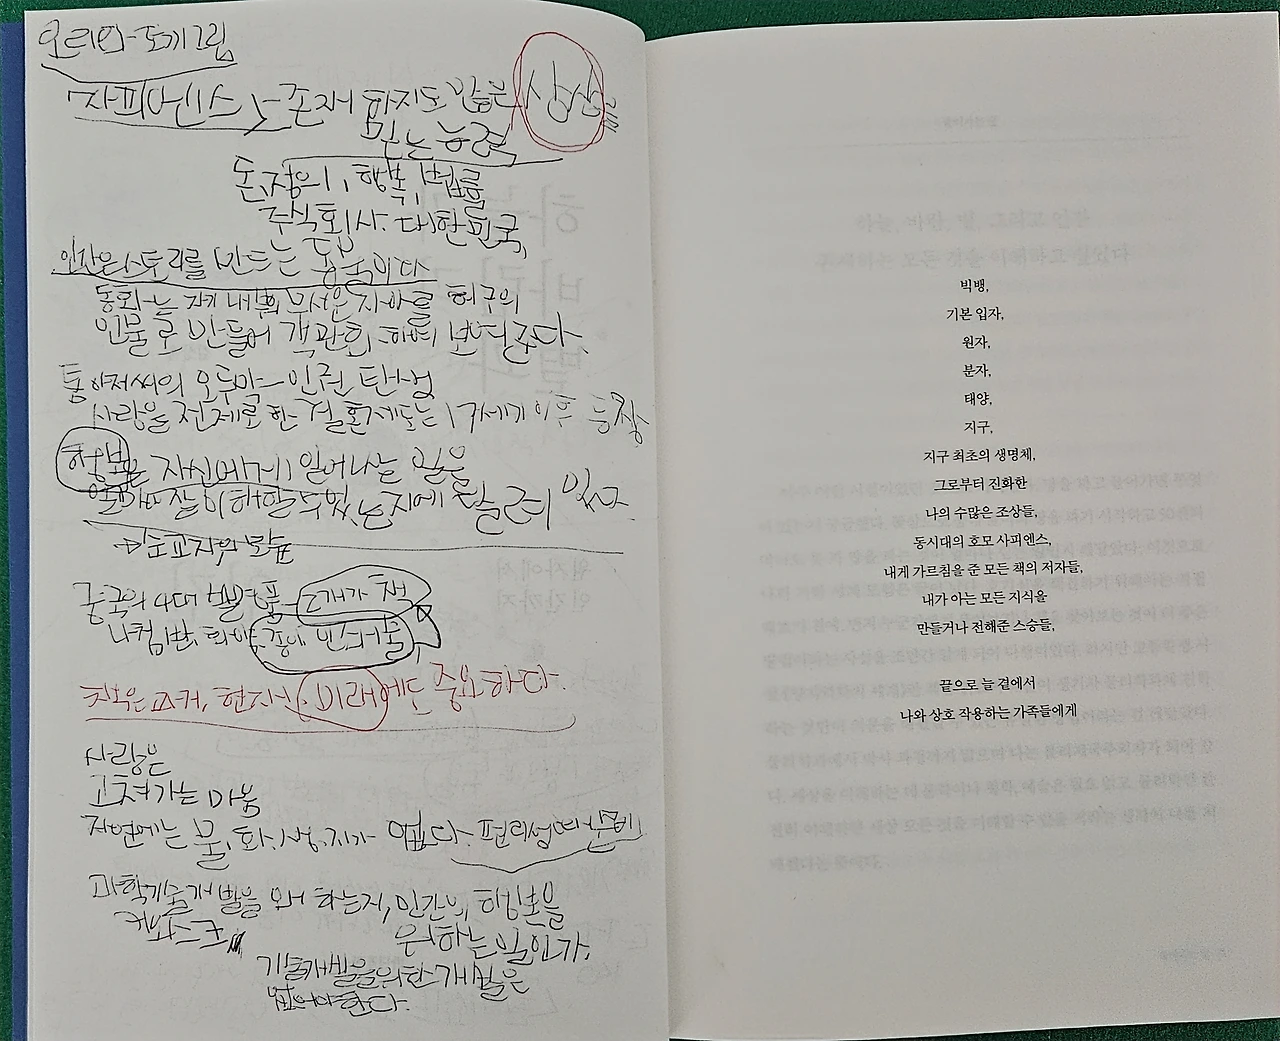 오리와 토끼 그림
사피엔스 > 존재 하지도 않은 상상
믿는 능력
돈, 정의, 행복, 법률
주식회사, 대한민국,
인간은 스토리를 만드는 동물이다
동화는 자기 내부의 무서운 자아를 허구의
인물로 만들어 객관화 하여 보여준다.
톰 아저씨의 오두막 - 인권 탄생
사랑을 전제로 한 결혼제도는 17세기 이후 등장
행복은 자신에게 일어나는 일을
얼마나 잘 이해할 수 있는지에 달려 있다.
→ 종교자의 모습
중국의 4대 발명품 - 2개가 책
나침반, 화약, 종이 인쇄술
책은 과거, 현재, 미래에도 중요하다.
사랑은
고쳐가는 마음
자연에는 물, 화, 생, 지가 없다. 편리성 때문에
과학기술개발을 왜 하는지, 인간의 행복을
위하는 일인가,
기술개발을 위한 개발은
없어야 한다.
빅뱅,
기본 입자,
원자,
분자,
태양,
지구,
지구 최초의 생명체,
그로부터 진화한
나의 수많은 조상들,
동시대의 호모 사피엔스,
내게 가르침을 준 모든 책의 저자들,
내가 아는 모든 지식을
만들거나 전해준 스승들,
끝으로 늘 곁에서
나와 상호 작용하는 가족들에게